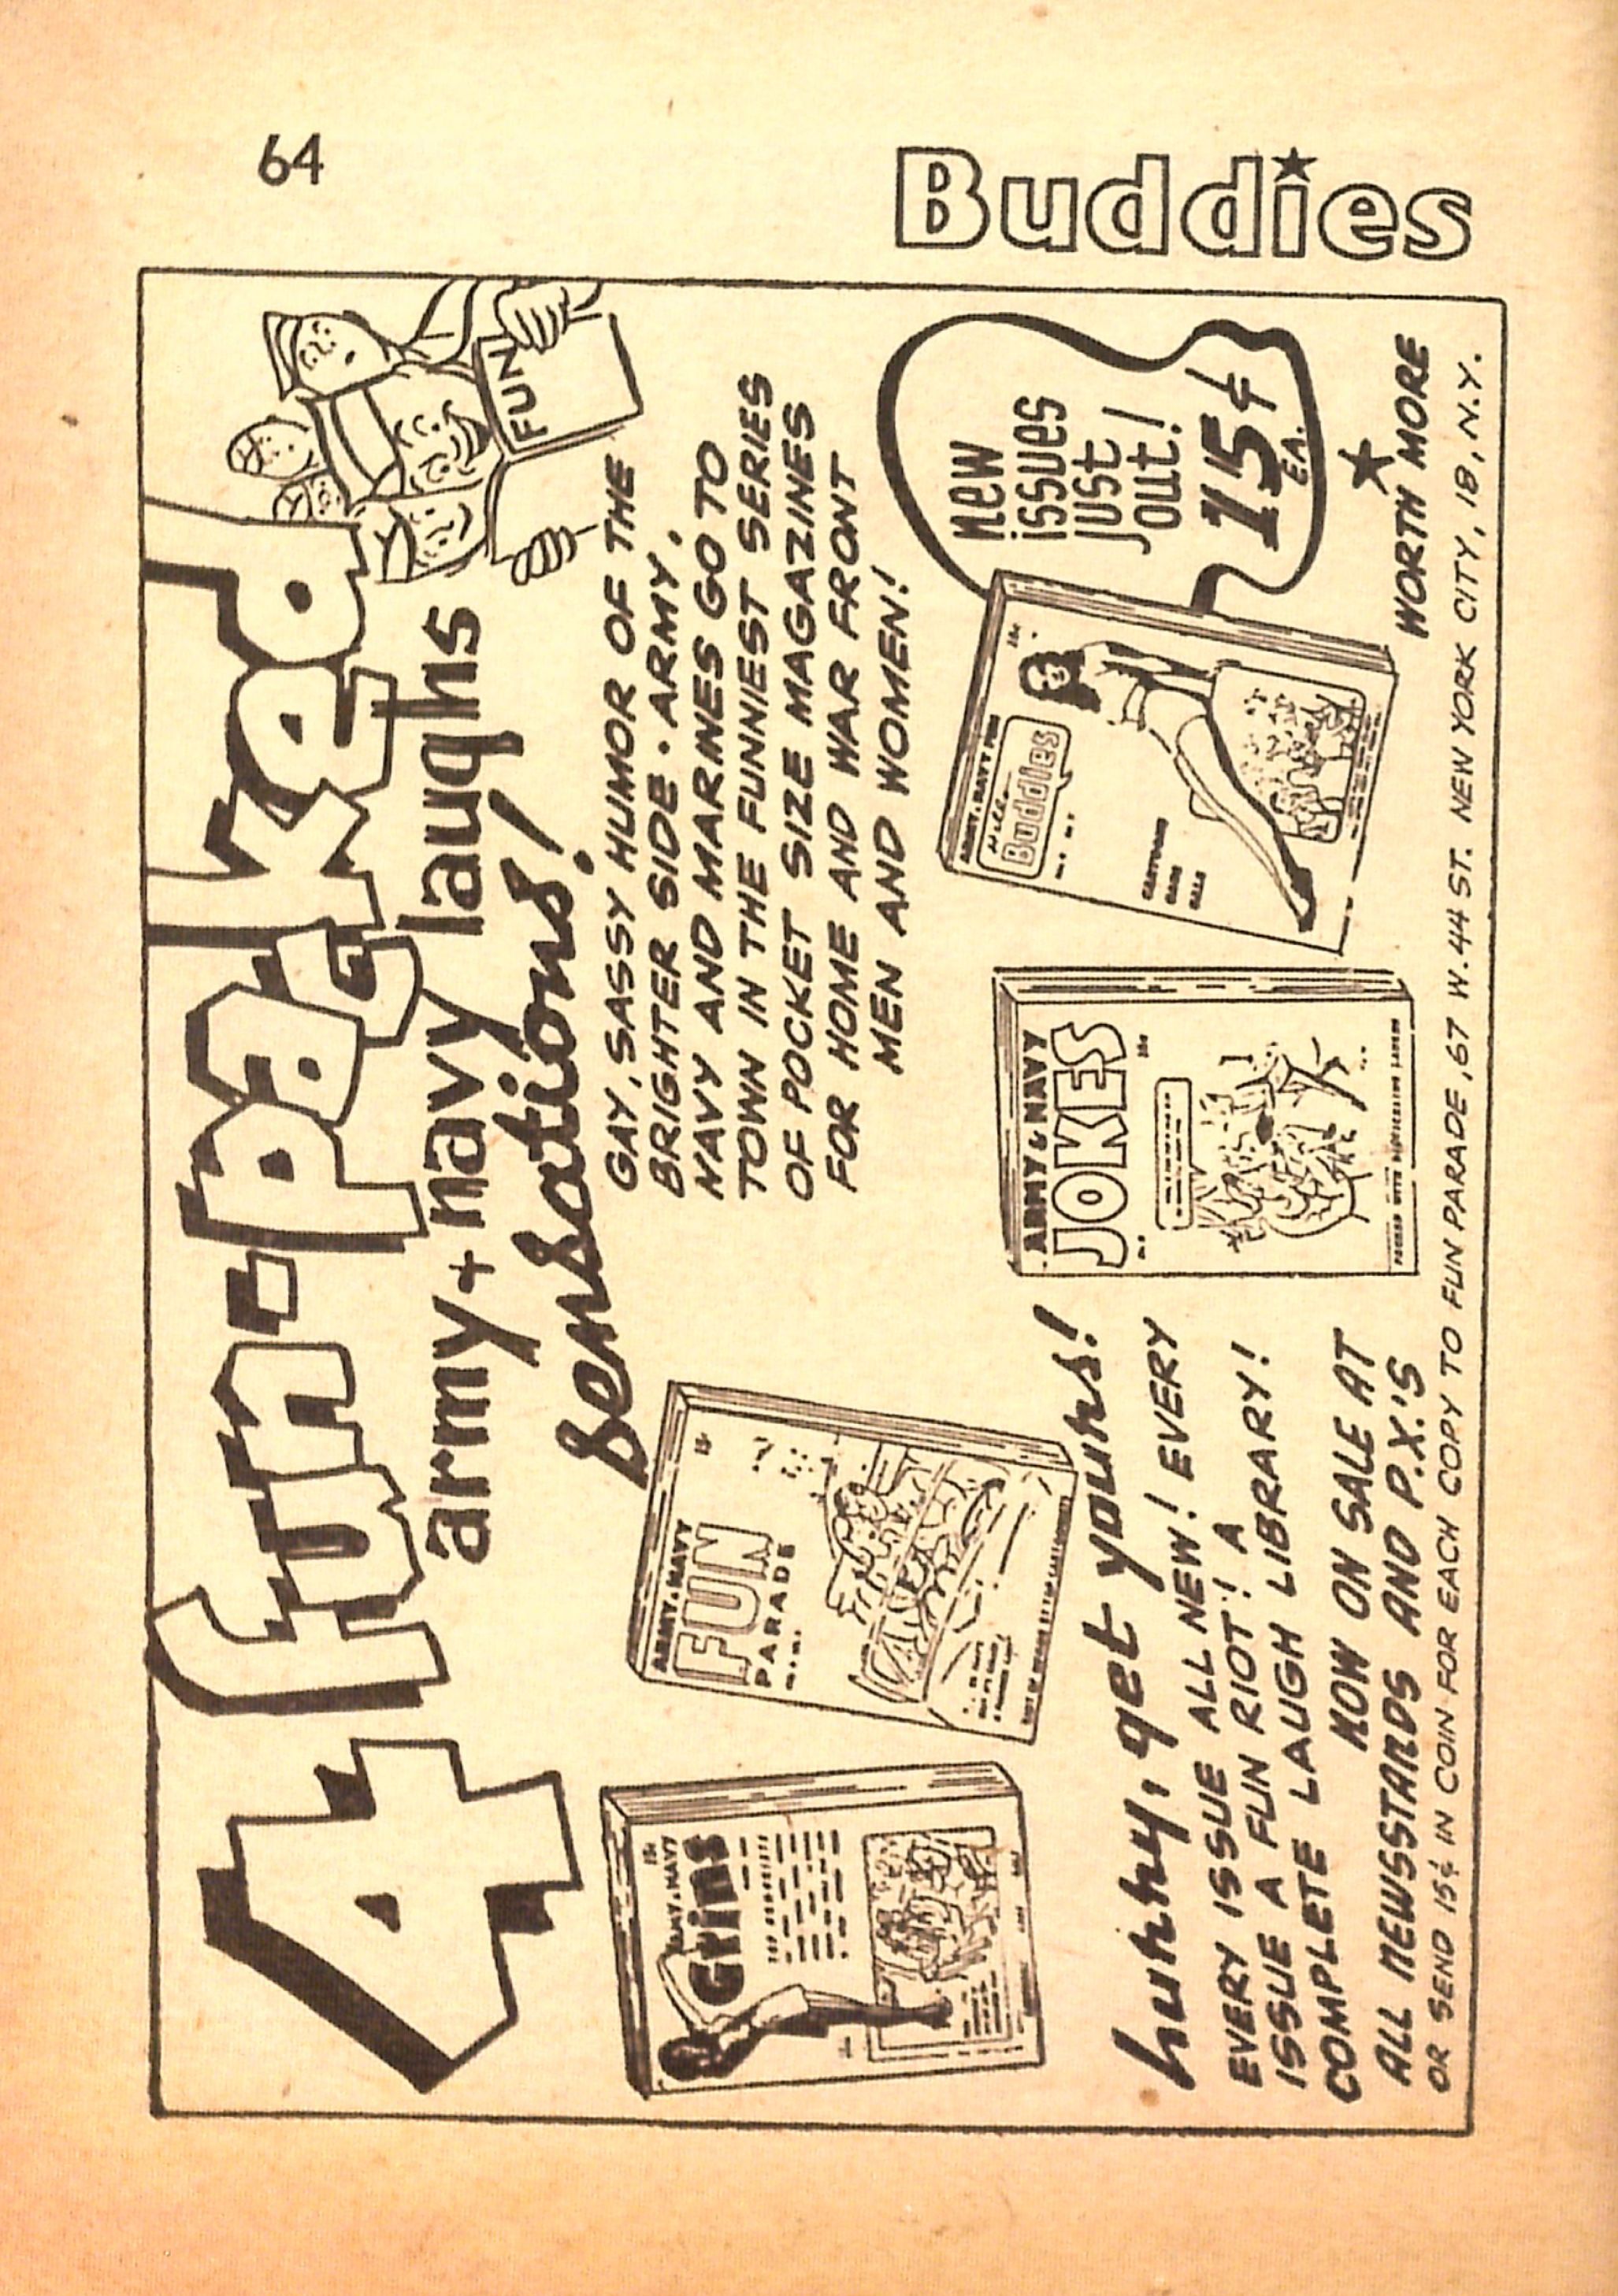 64
Buddies
4 fun-packed
army + navy laughs
sensations!
FUN
GAY, SASSY HUMOR OF THE
BRIGHTER SIDE · ARMY,
NAVY AND MARINES GO TO
TOWN IN THE FUNNIEST SERIES
OF POCKET SIZE MAGAZINES
FOR HOME AND WAR FRONT
MEN AND WOMEN!
15¢
ARMY & NAVY
Grins
ARMY & NAVY
FUN
PARADE
15¢
ARMY & NAVY
JOKES
15¢
ARMY & NAVY FUN
Hello
Buddies
15¢
CARTOONS
GAGS
GALS
new
issues
just
out!
15¢
EA.
WORTH MORE
hurry, get yours!
EVERY ISSUE ALL NEW! EVERY
ISSUE A FUN RIOT! A
COMPLETE LAUGH LIBRARY!
NOW ON SALE AT
ALL NEWSSTANDS AND P.X.'S
OR SEND 15¢ IN COIN FOR EACH COPY TO FUN PARADE, 67 W. 44 ST. NEW YORK CITY, 18, N.Y.